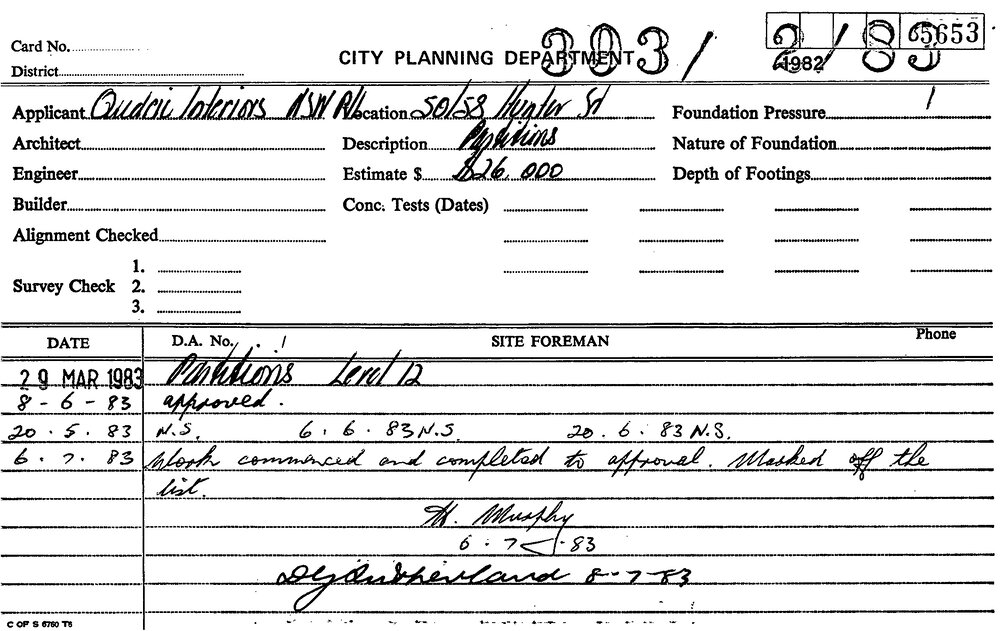 303/2/83 5653
Card No. CITY PLANNING DEPARTMENT 1982
District
Applicant Quadric Interiors NSW P/L Location 50/58 Hunter St Foundation Pressure
Architect Description Partitions Nature of Foundation
Engineer Estimate $ $26,000 Depth of Footings
Builder Conc. Tests (Dates)
Alignment Checked
1.
Survey Check 2.
3.
DATE D.A. No. SITE FOREMAN Phone
29 MAR 1983 Partitions Level 12
8-6-83 approved.
20.5.83 N.S. 6.6.83 N.S. 20.6.83 N.S.
6.7.83 Work commenced and completed to approval. Marked off the
list.
Murphy
6.7.83
8-7-83
C OF S 6760 T6